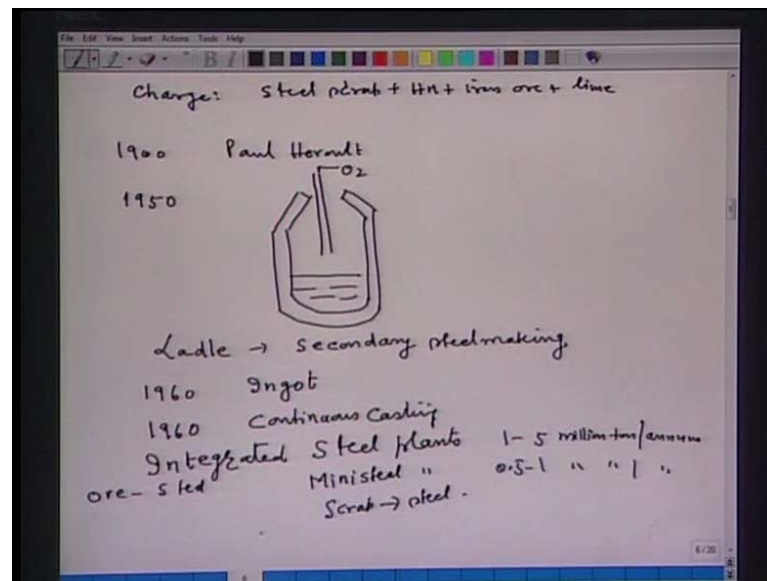 File Edit View Insert Actions Tools Help
Charge: Steel scrab + HM + iron ore + lime
1900 Paul Heroult
O2
1950
Ladle → Secondary steelmaking
1960 Ingot
1960 Continuous Casting
Integrated Steel plants 1-5 million ton/annum
ore - Steel Ministeel " 0.5-1 " " / "
Scrab → steel.
6/20